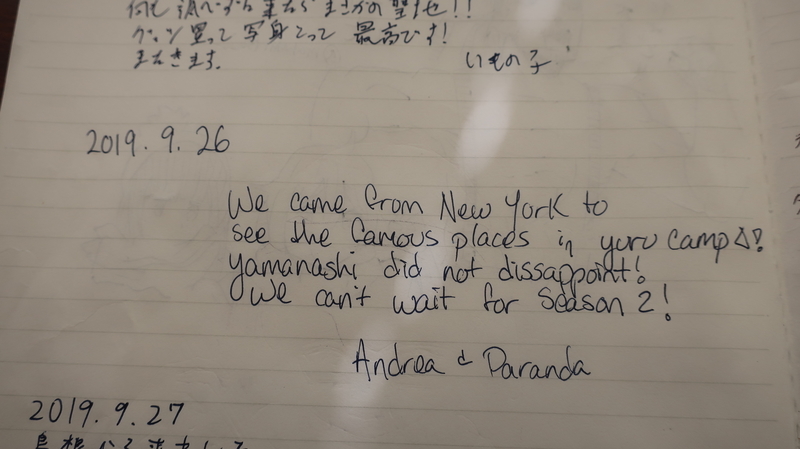 何も調べずに来たらまさかの聖地!!
グッズ買って写真とって 最高です!
またきます。
いもの子
2019.9.26
We came from New York to
see the famous places in yuru camp△!
Yamanashi did not dissappoint!
We can't wait for Season 2!
Andrea & Paranda
2019.9.27
島根から来ました